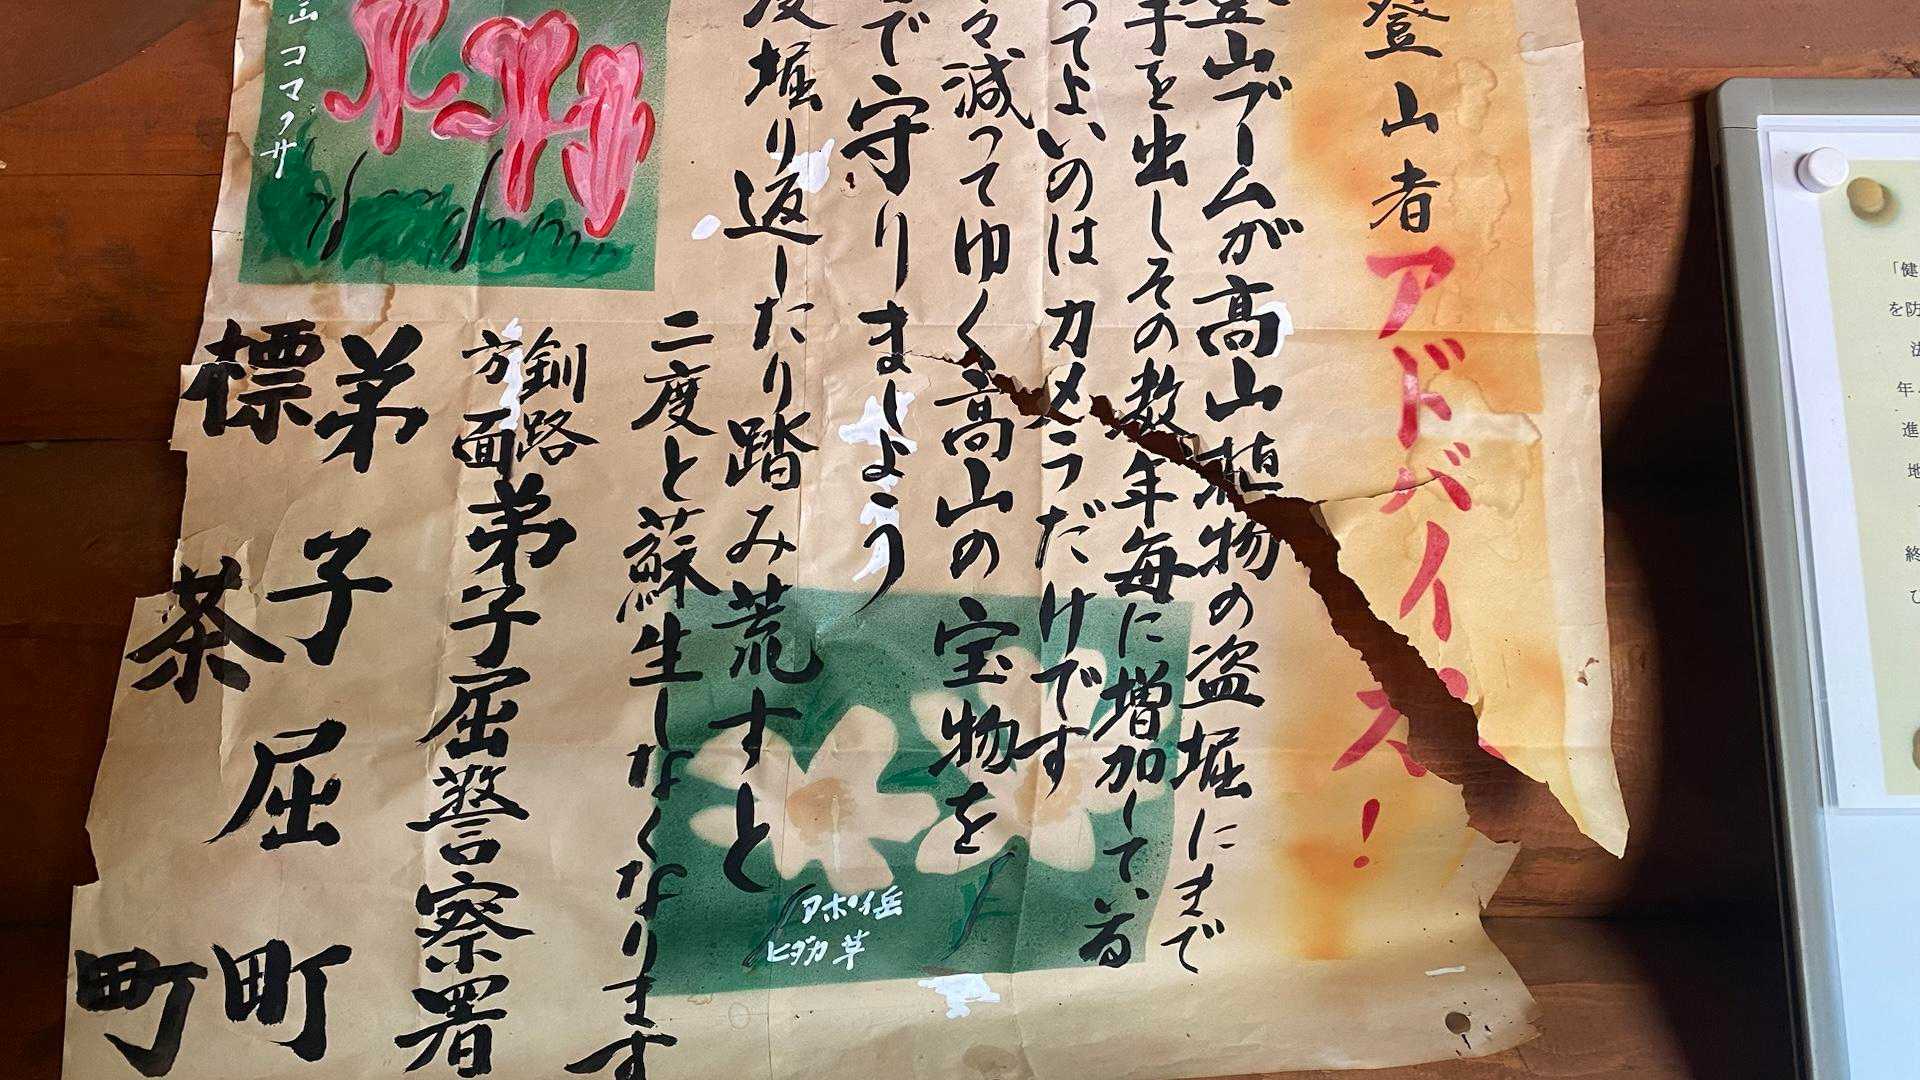 登山者アドバイス!
登山ブームが高山植物の盗堀にまで
手を出しその数年毎に増加している
ってよいのはカメラだけです
々減ってゆく高山の宝物を
で守りましょう
度堀り返したり踏み荒すと
二度と蘇生しなくなります
釧路
方面
弟子屈警察署
弟子屈町
標茶町
山コマクサ
アポイ岳
ヒダカ草